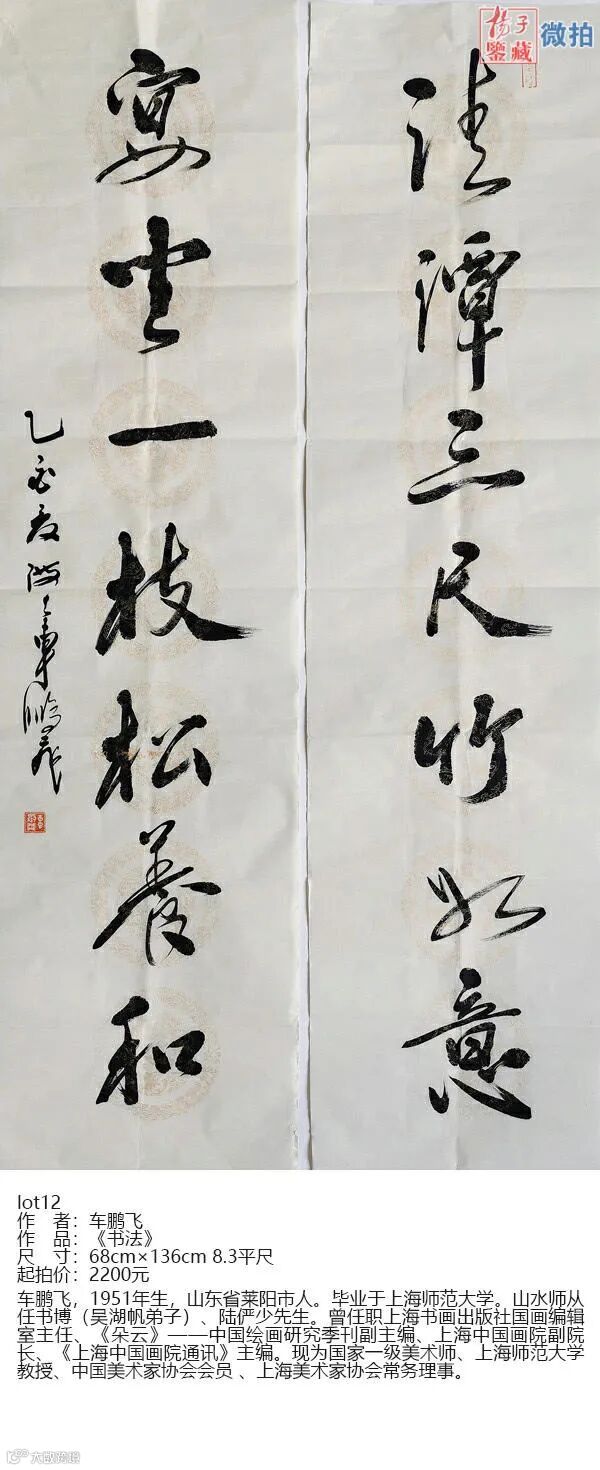 揚子
鑒藏
微拍
清譚三尺竹如意
宴坐一枝松養和
乙酉夏海上車鵬飛
lot12
作 者：车鹏飞
作 品：《书法》
尺 寸：68cm×136cm 8.3平尺
起拍价：2200元
车鹏飞，1951年生，山东省莱阳市人。毕业于上海师范大学。山水师从
任书博（吴湖帆弟子）、陆俨少先生。曾任职上海书画出版社国画编辑
室主任、《朵云》——中国绘画研究季刊副主编、上海中国画院副院
长、《上海中国画院通讯》主编。现为国家一级美术师、上海师范大学
教授、中国美术家协会会员 、上海美术家协会常务理事。
大数跨境